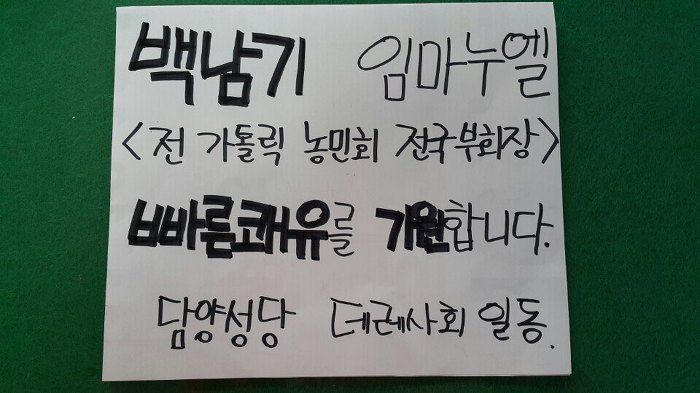 백남기 임마누엘
<전 가톨릭 농민회 전국부회장>
빠른쾌유를 기원합니다.
담양성당 데레사회 일동.